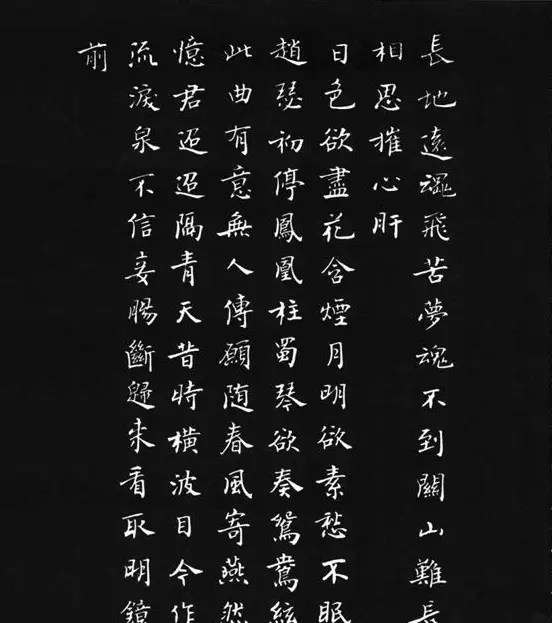 長地遠魂飛苦夢魂不到關山難長
相思摧心肝
日色欲盡花含煙月明欲素愁不眠
趙瑟初停鳳凰柱蜀琴欲奏鴛鴦絃
此曲有意無人傳願随春風寄燕然
憶君迢迢隔青天昔時橫波目今作
流淚泉不信妾腸斷歸来看取明鏡
前